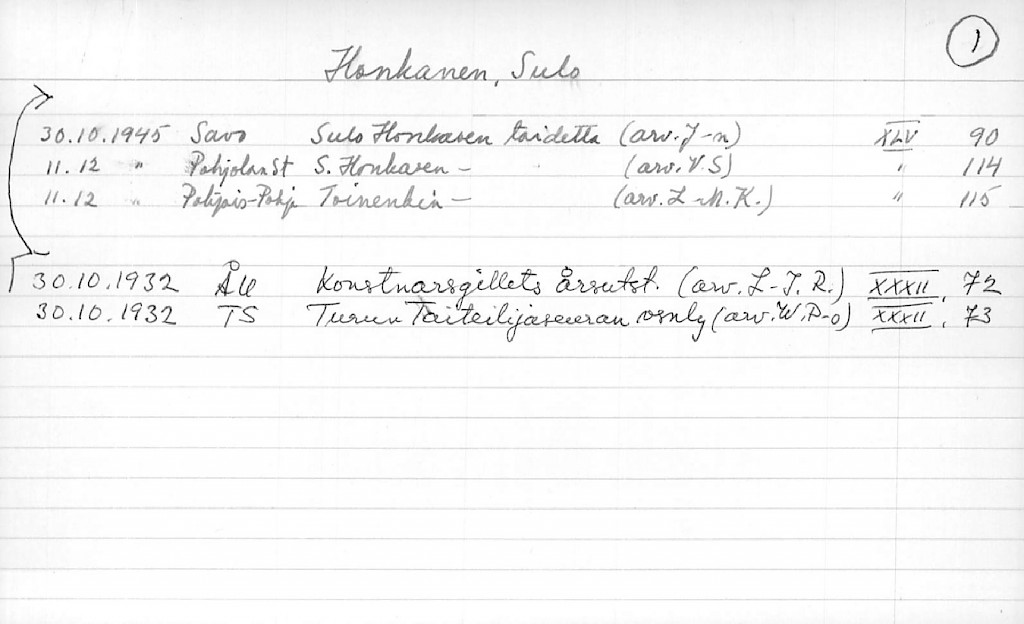 1
Honkanen, Sulo
30.10.1945 Savo Sulo Honkasen taidetta (arv. J-n) XLV 90
11.12 " Pohjolan St S. Honkasen - (arv. V.S) " 114
11.12 " Pohjois-Pohj Toinenkin - (arv. L-M.K.) " 115
30.10.1932 ÅU Konstnärsgillets årsutst. (arv. L-J. R.) XXXII, 72
30.10.1932 TS Turun Taiteilijaseuran vsnly (arv. W.P-o) XXXII, 73